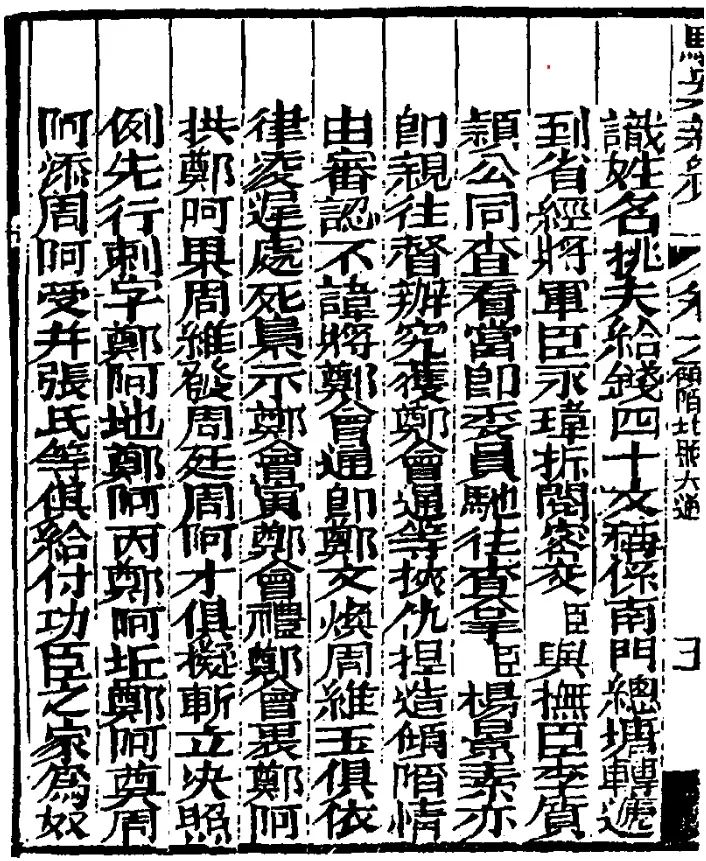 識姓名挑夫給錢四十文稱係南門總塘轉遞
到省經將軍臣永瑋拆閱密交臣與撫臣李質
穎公同查看當卽委員馳往查拏臣楊景素亦
卽親往督辦究獲鄭會通等挾仇捏造傾陌情
由審認不諱將鄭會通卽鄭文煥周維玉俱依
律凌遲處死梟示鄭會寅鄭會禮鄭會畏鄭阿
拱鄭阿果周維發周廷周阿才俱擬斬立决照
例先行刺字鄭阿地鄭阿丙鄭阿坵鄭阿奠周
阿添周阿受并張氏等俱給付功臣之家爲奴